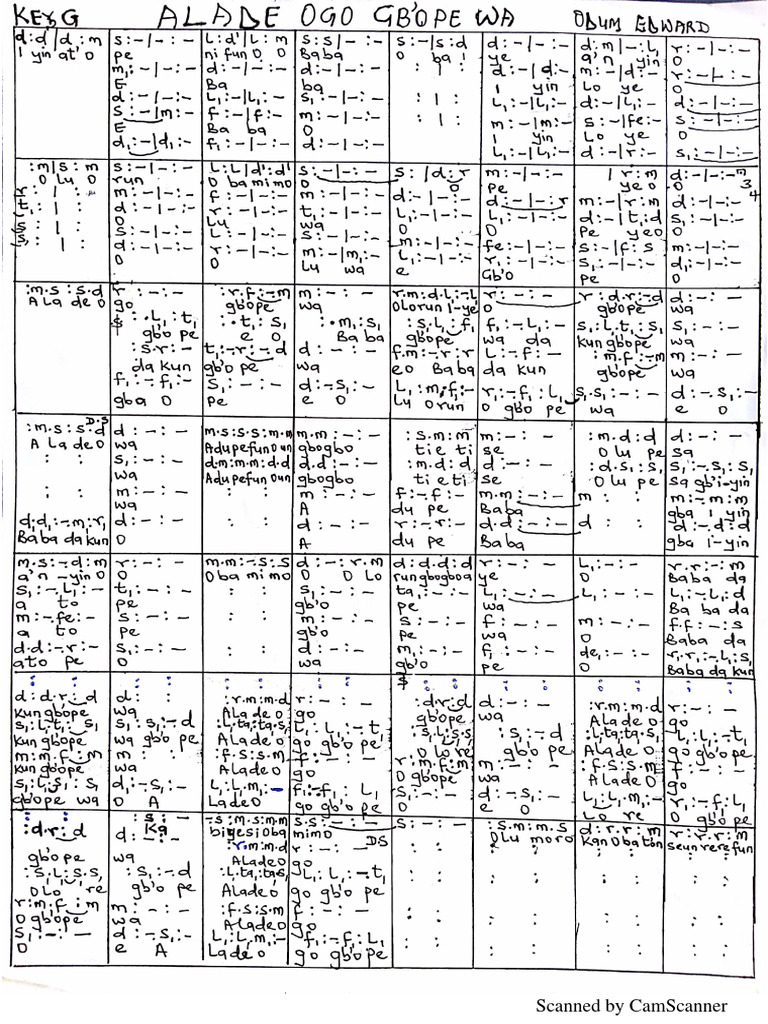 KEY G ALADE OGO GB'OPE WA ODUM EDWARD
d:d|d:m s:-|-:- L:d'|L:m s:s|-:- s:-|s:d d:-|-:- d:m|-:L, r:-|-:-
I yin at' O pe ni fun O O Baba O ba I ye a'n yin O
m,:-|-:- d:-|-:- d:-|d:- m:-|d:- r:-|-:-
E Ba ba I yin Lo ye
d:-|-:- L,:-|L,:- s,:-|-:- L,:-|L,:- d:-|L,:- d:-|-:-
s:-|m:- f:-|f:- m:-|-:- m:-|m:- s:-|fe:- s:-|-:-
E Ba ba O I yin Lo ye O
d,:-|d,:- f,:-|-:- d:-|-:- L,:-|L,:- d:-|r:- s,:-|-:-
:m|s:m s:-|-:- L:L|d':d' s:-|-:- s:|d:r m:-|-:- |r:m d:-|-:-
O lu O run O ba mi mo O pe ye O O
m:-|-:- f:-|-:- m:-|-:- d:-|-:- d:-|-:r m:-|r:m d:-|-:-
d:-|-:- r:-|-:- t,:-|-:- L,:-|-:- L,:-|-:- d:-|t,:d s,:-|-:-
Lu wa O O Pe yeo O
s:-|-:- L:-|-:- s:-|-:- m:-|-:- fe:-|-:- s:-|f:s m:-|-:-
d:-|-:- r:-|-:- m:-|m,:- L,:-|-:- r:-|-:- s,:-|-:- d,:-|-:-
O O Lu wa e Gb'O Pe O
:m.s:s.d r:-:- :r.f:-m m:-:- r.m:d.L,:-L, r:-:- r:d.r:-d d:-:-
A la de O go gbope wa Olorun I-ye O gbope wa
:.L,:t, :.t,:s, :.m,:s, :s,.L,:f, f,:-L,:- s,:L,.t,:s, s,:-:-
gbo pe e O Ba ba gbope wa da kun gbope wa
:s.r:- t,:-r:-d d:-:- f.m:-r:r L:-f:- :m.f:-m m:-:-
da kun gb'o pe wa eo Ba ba da kun gbope wa
f,:-f,:- s,:-:- d:-s,:- L,:m,f,:- r,:-f,:L, s,.s,:-:- d:-s,:-
gba O pe Lu Orun O gbo pe wa e O
D.S
:m.s:s.d d:-:- m.s:s.s:m.m m.m:-:- :s.m:m m:-:- :m.d:d d:-:-
A la de O wa Adupefun Oun gbogbo tie ti se O lu pe sa
: : s,:-:- d.m:m.m:d.d d.d:-:- :m.d:d d:-:- :d.s,:s, s,:-.s,:s,
wa Adupefun Oun gbogbo ti e ti se O lu pe sa gb'i-yin
: : m:-:- : : m:-:- f:-f:- m.m:-:- m : m:-.m:m
wa A du pe Baba gba i-yin
d,d,:-m,:r, d:-:- : : d:-:- r:-r:- d.d:-:- d : d:-.d:d
Baba da kun O A du pe Baba gba i-yin
m.s:-d:m r:-:- m.m:-s:s d:-:r.m d:d.d:d r:-:- L,:-:- r.r:-:m
a'n-yin O O Oba mi mo O O lo rungbogboa ye O Baba da
s,:-L,:- t,:-:- : : s,:-:- ta,:-:- L,:-:- L,:-:- L,:-L,:d
a to pe gb'o pe wa Ba ba da
m:-fe:- s:-:- : : m:-:- s:-:- f:-:- m:-:- f.f:-:s
a to pe gb'o pe wa O Baba da
d.d:-r:- s,:-:- : : d:-:- m:-:- f,:-:- de,:-:- r,r,:-L,:s,
ato pe O wa gb'o pe O Baba da kun
d:d.r:d d: : :r.m:m.d r:-:- :d.r:d d:-:- :r.m:m.d r:-:-
kun gbope wa Alade O go gb'ope wa Alade O go
s,:L,.t,:s, s,:s,:-d :L,ta,:ta,.s, L,:L,:-t, :s,L,:s,s, :s,:-d :L,ta,:ta,s, L,:L,:-t,
kun gbope wa gbo pe Alade O go gb'o pe O lo re gb'o pe Alade O go gb'o pe
m:m.f:m m:-:- :f.s:s.m f:-:- r:m.f:m m:-:- :f.s:s.m f:-:-
kun gbope wa Alade O go O gbope wa Alade O go
s,:L,s,:s, d:-s,:- L,:L,m,:- f,:-f,:L, s,:-:- d:-s,:- L,:L,m,:- r,:-f,:L,
gbope wa O A Lade O go gbo pe O e O Lo re O gb'o pe
:d.r:d d:-:- -s:m.s:m.m s.s:-:- s:-:- :s.m:m.s d:r.r:m r:r.r:m
gbope wa bigesi Oba mimo DS O lu moro Kan Oba ton seun rere fun
:r.m:m.d r:-:-
Alade O go
:s,L,:s,s, :s,:-d :L,ta,:ta,s, L,:L,:-t,
O lo re gb'o pe Alade O go gb'o pe
r:m.f:m m:-:- :f.s:s.m f:-:-
O gb'ope wa Alade O go
s,:-:- d:-s,:- L,:L,m,:- f,:-f,:L,
O e A Lade O go gbo pe
Scanned by CamScanner